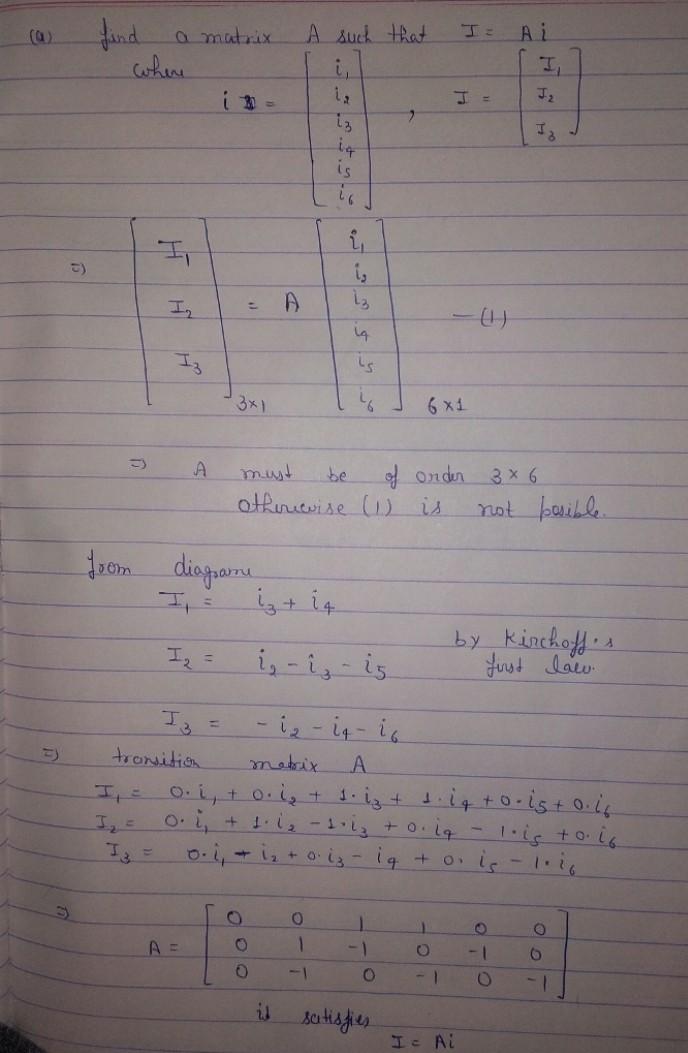 (a) find a matrix A such that I = Ai
where
i = [ i₁ i₂ i₃ i₄ i₅ i₆ ] , I = [ I₁ I₂ I₃ ]
⇒ [ I₁ I₂ I₃ ]3×1 = A [ i₁ i₂ i₃ i₄ i₅ i₆ ]6×1 — (1)
⇒ A must be of order 3×6
otherwise (1) is not posible.
from diagrame
I₁ = i₃ + i₄
by Kirchoff's
I₂ = i₂ - i₃ - i₅
first law.
I₃ = - i₂ - i₄ - i₆
⇒ transition matrix A
I₁ = 0·i₁ + 0·i₂ + 1·i₃ + 1·i₄ + 0·i₅ + 0·i₆
I₂ = 0·i₁ + 1·i₂ - 1·i₃ + 0·i₄ - 1·i₅ + 0·i₆
I₃ = 0·i₁ - i₂ + 0·i₃ - i₄ + 0·i₅ - 1·i₆
⇒
0 0 1 1 0 0
A = 0 1 -1 0 -1 0
0 -1 0 -1 0 -1
is satisfies
I = Ai